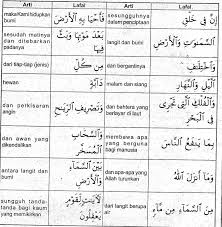 Arti Lafal Arti Lafal
makaKamihidupkan bumi فَأَحْيَا بِهِ ٱلْأَرْضَ sesungguhnya dalam penciptaan إِنَّ فِى خَلْقِ
sesudah matinya dan ditebarkan padanya بَعْدَ مَوْتِهَا وَبَثَّ فِيهَا langit dan bumi ٱلسَّمَٰوَٰتِ وَٱلْأَرْضِ
dari tiap-tiap (jenis) مِن كُلِّ dan bergantinya وَٱخْتِلَٰفِ
hewan دَآبَّةٍ malam dan siang ٱلَّيْلِ وَٱلنَّهَارِ
dan perkisaran angin وَتَصْرِيفِ ٱلرِّيَٰحِ dan bahtera yang berlayar di laut وَٱلْفُلْكِ ٱلَّتِى تَجْرِى فِى ٱلْبَحْرِ
dan awan yang dikendalikan وَٱلسَّحَابِ ٱلْمُسَخَّرِ membawa apa yang berguna bagi manusia بِمَا يَنفَعُ ٱلنَّاسَ
antara langit dan bumi بَيْنَ ٱلسَّمَآءِ وَٱلْأَرْضِ dan apa-apa yang Allah turunkan وَمَآ أَنزَلَ ٱللَّهُ
sungguh tanda-tanda bagi kaum yang memikirkan لَءَايَٰتٍ لِّقَوْمٍ يَعْقِلُونَ dari langit berupa air مِنَ ٱلسَّمَآءِ مِن مَّآءٍ